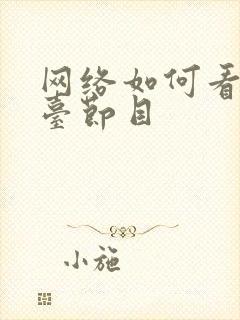 网络如何看
臺节目
小施